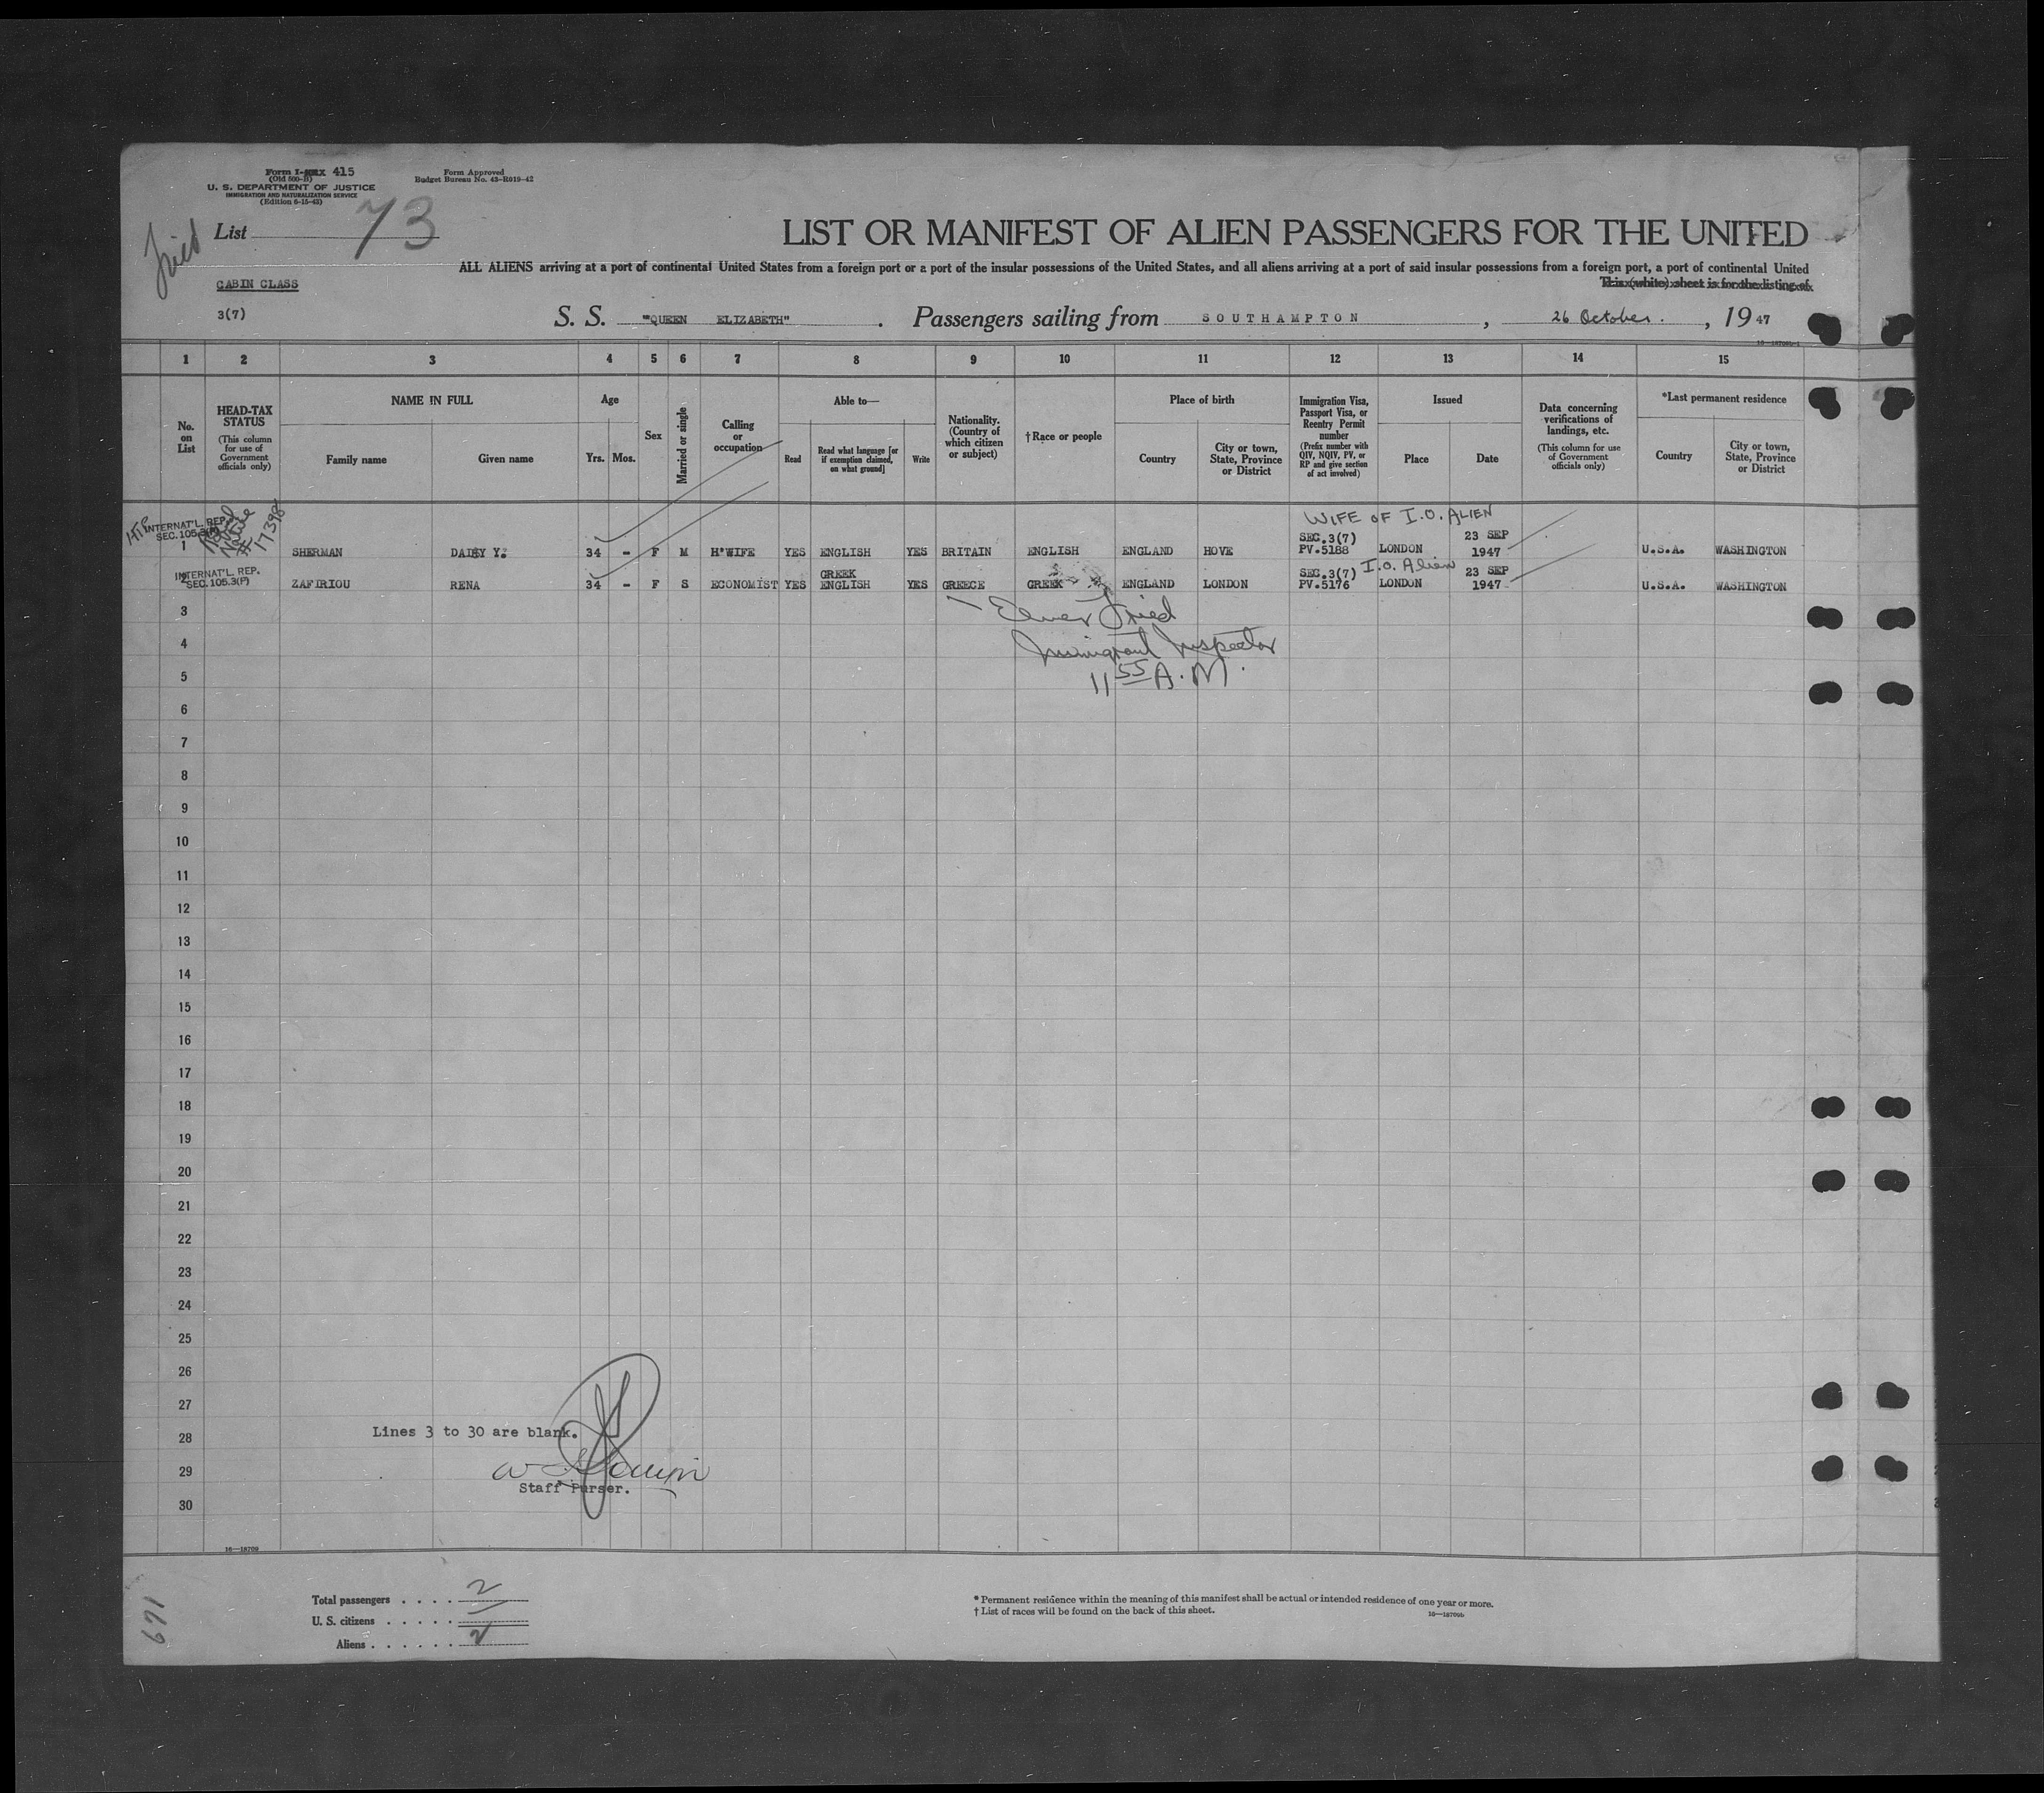 Form I-415
(Old 500-B)
U. S. DEPARTMENT OF JUSTICE
IMMIGRATION AND NATURALIZATION SERVICE
(Edition 6-15-43)
Form Approved
Budget Bureau No. 43-R019-42
Fried
List 73
LIST OR MANIFEST OF ALIEN PASSENGERS FOR THE UNITED
ALL ALIENS arriving at a port of continental United States from a foreign port or a port of the insular possessions of the United States, and all aliens arriving at a port of said insular possessions from a foreign port, a port of continental United
This (white) sheet is for the listing of
CABIN CLASS
3(7)
S. S. "QUEEN ELIZABETH". Passengers sailing from SOUTHAMPTON, 26 October., 1947
1 2 3 4 5 6 7 8 9 10 11 12 13 14 15
No. on List
HEAD-TAX STATUS
(This column for use of Government officials only)
NAME IN FULL
Family name
Given name
Age
Yrs. Mos.
Sex
Married or single
Calling or occupation
Able to—
Read
Read what language [or if exemption claimed, on what ground]
Write
Nationality. (Country of which citizen or subject)
†Race or people
Place of birth
Country
City or town, State, Province or District
Immigration Visa, Passport Visa, or Reentry Permit number
(Prefix number with QIV, NQIV, PV, or RP and give section of act involved)
Issued
Place
Date
Data concerning verifications of landings, etc.
(This column for use of Government officials only)
*Last permanent residence
Country
City or town, State, Province or District
INTERNAT'L. REP.
SEC. 105.3(P)
17398
WIFE OF I.O. ALIEN
SEC.3(7) 23 SEP
1 SHERMAN DAISY Y. 34 - F M H'WIFE YES ENGLISH YES BRITAIN ENGLISH ENGLAND HOVE PV.5188 LONDON 1947 U.S.A. WASHINGTON
INTERNAT'L. REP.
SEC. 105.3(P)
GREEK SEC.3(7) I.O. Alien 23 SEP
2 ZAFIRIOU RENA 34 - F S ECONOMIST YES ENGLISH YES GREECE GREEK ENGLAND LONDON PV.5176 LONDON 1947 U.S.A. WASHINGTON
3
Elmer Fried
4
Immigrant Inspector
5
11 55 A.M.
6
7
8
9
10
11
12
13
14
15
16
17
18
19
20
21
22
23
24
25
26
27
28
Lines 3 to 30 are blank.
29
Staff Purser.
30
16—18709
671
Total passengers . . . . 2
U. S. citizens . . . . . —
Aliens . . . . . . 2
* Permanent residence within the meaning of this manifest shall be actual or intended residence of one year or more.
† List of races will be found on the back of this sheet.
16—18709b